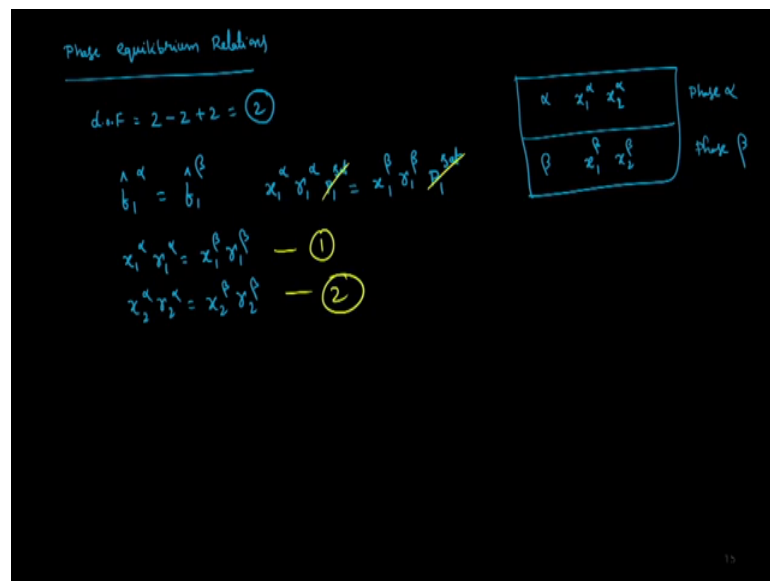 Phase equilibrium Relations
d.o.F = 2 - 2 + 2 = 2
f̂₁^α = f̂₁^β x₁^α γ₁^α P₁^sat = x₁^β γ₁^β P₁^sat
x₁^α γ₁^α = x₁^β γ₁^β — 1
x₂^α γ₂^α = x₂^β γ₂^β — 2
α x₁^α x₂^α Phase α
β x₁^β x₂^β Phase β
15